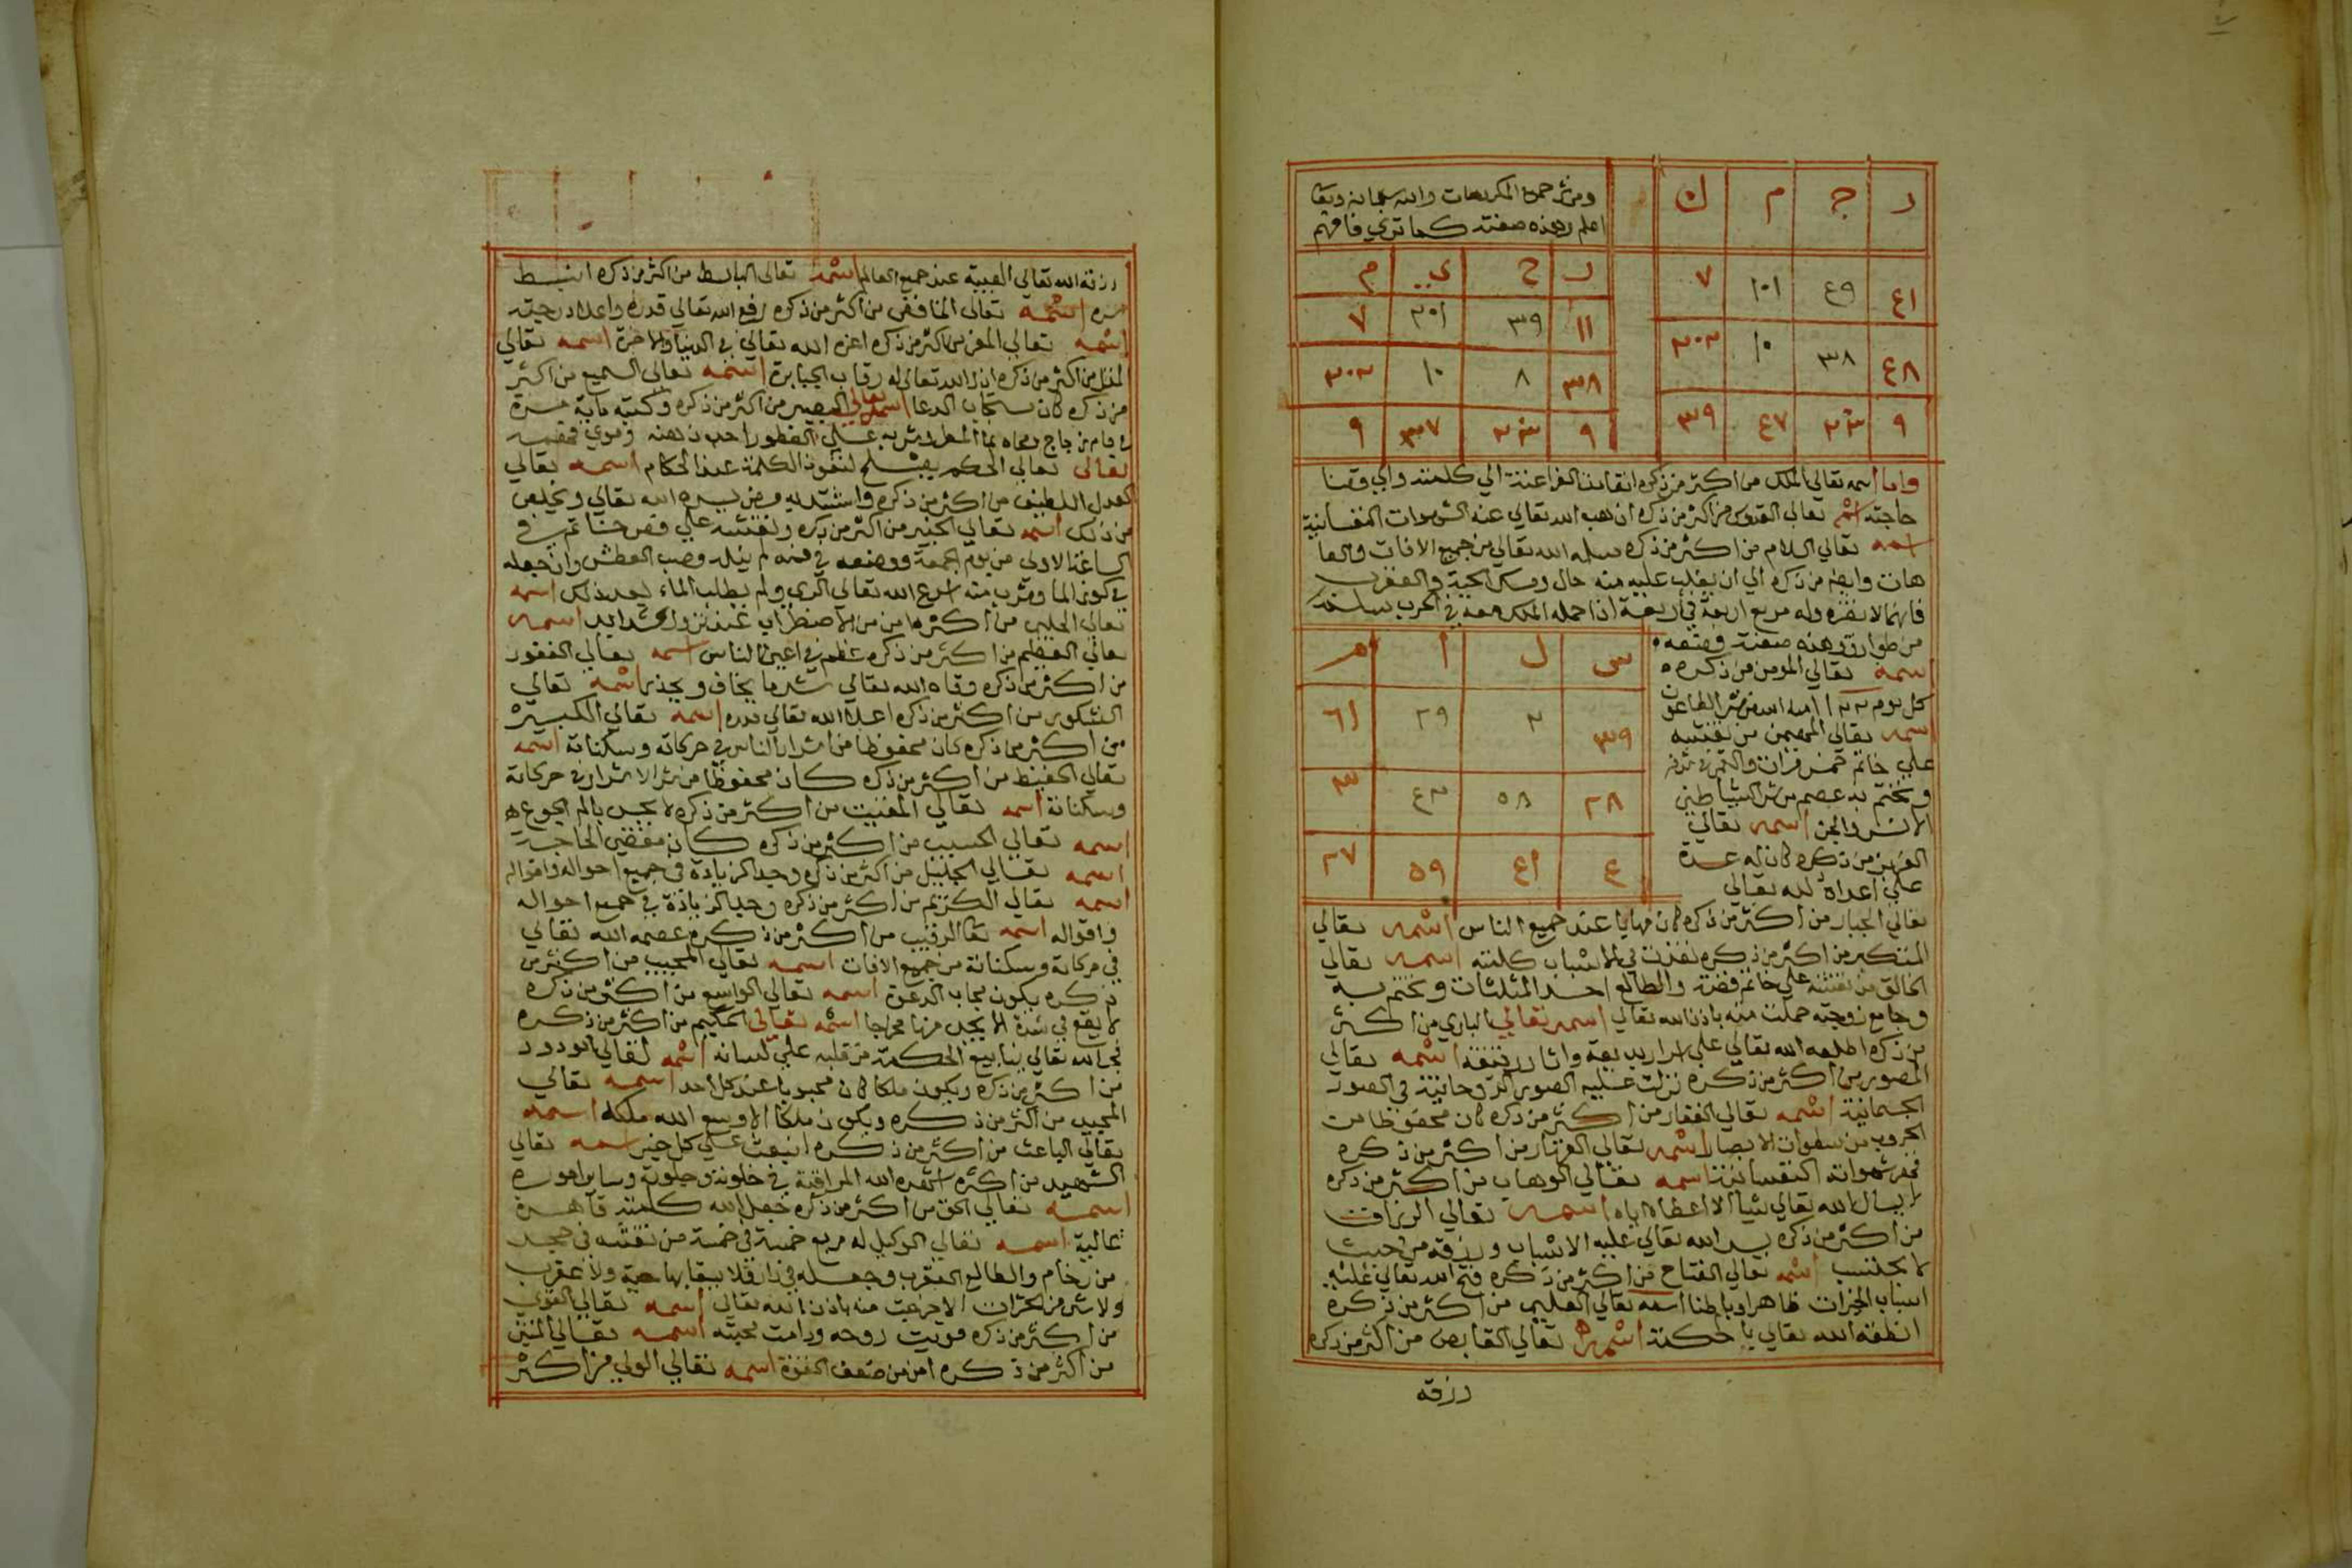 ر ج م ن
٤١ ٤٩ ١٠١ ٧
٤٨ ٣٨ ١٠ ٣٠٢
٩ ٤٧ ٣٩
ومن شر جميع المكروهات والله سبحانه وتعا
اعلم وهذه صفته كما تري فافهم
ر ح ي م
١١ ٣٩ ٢٠١ ٧
٣٨ ٨ ١٠ ٢٠٢
٩ ٣٧ ٩
واما اسمه تعالي الملك من اكثر من ذكره الفراعنة الي كلمته
حاجته اسمه تعالي القدوس من اكثر من ذكره اذهب الله تعالي عنه الشهوات النفسانية
اسمه تعالي السلام من اكثر من ذكره سلمه الله تعالي من جميع الافات والعا
هات من ذكره الي ان يغلب عليه منه حال ومسك الحية والعقرب
فانهما لا تضره وله مربع اربعة في اربعة اذا حمله الملك معه في الحرب
وهذه صفته
س ل ا م
٣٩ ٢ ٢٩ ٦١
٢٨ ٥٨ ٤٣ ٣
٤ ٤١ ٥٩ ٢٧
اسمه تعالي المومن من ذكره
كل يوم امنه الله من شر الطاعون
اسمه تعالي المهيمن من نقشه
علي خاتم والقمر في شرفه
وتختم به عصم من شر الشياطين
الانس والجن اسمه تعالي
العزيز من ذكره كان له عدة
علي اعداه لله تعالي
تعالي الجبار من اكثر من ذكره كان مهابا عند جميع الناس اسمه تعالي
المتكبر من اكثر من ذكره نفذت في الاسباب كلمته اسمه تعالي
الخالق من نقشه علي خاتم فضة والطالع احد المثلثات وتختم به
وجامع زوجته حملت منه باذن الله تعالي اسمه تعالي الباري من اكثر
من ذكره اطلعه الله تعالي علي اسرار اسمه تعالي
المصور من اكثر من ذكره نزلت عليه الصور الروحانية في الصور
الجسمانية اسمه تعالي الغفار من اكثر من ذكره كان محفوظا من
الحروب من سطوات الابصار اسمه تعالي القهار من اكثر من ذكره
قهر شهواته النفسانية اسمه تعالي الوهاب من اكثر من ذكره
لا يسال الله تعالي شيا الا اعطاه اياه اسمه تعالي الرزاق
من اكثر من ذكره يسر الله تعالي عليه الاسباب ورزقه من حيث
لا يحتسب اسمه تعالي الفتاح من اكثر من ذكره فتح الله تعالي عليه
اسباب الخيرات ظاهرا وباطنا اسمه تعالي العليم من اكثر من ذكره
انطقه الله تعالي بالحكمة اسمه تعالي القابض من اكثر من ذكره
رزقه
رزقه الله تعالي الهيبة عند جميع العالم اسمه تعالي الباسط من اكثر من ذكره انبسط
سره اسمه تعالي من اكثر من ذكره رفع الله تعالي قدره واعلا درجته
اسمه تعالي المعز من اكثر من ذكره اعزه الله تعالي في الدنيا والاخرة اسمه تعالي
المذل من اكثر من ذكره اذل الله تعالي له رقاب الجبابرة اسمه تعالي السميع من اكثر
من ذكره كان مستجاب الدعا اسمه تعالي البصير من اكثر من ذكره وكتبه
علي الفطور ذهنه
تعالي تعالي الحكم يصلح لنفوذ الكلمة عند الحكام اسمه تعالي
العدل اللطيف من اكثر من ذكره يسره الله تعالي
من ذلك اسمه تعالي الخبير من اكثر من ذكره ونقشه علي فص خاتم في
الساعة الاولي من يوم الجمعة ووضعه في فمه لم العطش وان جعله
في كوز الما وشرب منه اسرع الله تعالي الري ولم يطلب الماء بعد ذلك اسمه
تعالي الحليم من اكثر من الاضطراب عند نزول الشدايد اسمه
تعالي العظيم من اكثر من ذكره عظم في اعين الناس اسمه تعالي الغفور
من اكثر من ذكره وقاه الله تعالي شر ما يخاف ويحذر اسمه تعالي
الشكور من اكثر من ذكره اعلا الله تعالي قدره اسمه تعالي الكبير
من اكثر من ذكره كان محفوظا من اشرار الناس في حركاته وسكناته اسمه
تعالي الحفيظ من اكثر من ذكره كان محفوظا من شر الاشرار في حركاته
وسكناته اسمه تعالي المقيت من اكثر من ذكره لا يحس بالم الجوع
اسمه تعالي الحسيب من اكثر من ذكره كان مقضي الحاجة
اسمه تعالي الجليل من اكثر من ذكره وجد الزيادة في جميع احواله واقواله
اسمه تعالي الكريم من اكثر من ذكره وجد الزيادة في جميع احواله
واقواله اسمه تعالي الرقيب من اكثر من ذكره عصمه الله تعالي
في حركاته وسكناته من جميع الافات اسمه تعالي المجيب من اكثر من
ذكره يكون مجاب الدعوة اسمه تعالي الواسع من اكثر من ذكره
لا يقع في شدة الا يجد منها مخرجا اسمه تعالي الحكيم من اكثر من ذكره
فجر الله تعالي ينابيع الحكمة من قلبه علي لسانه اسمه تعالي الودود
من اكثر من ذكره ويكون ملكا كان محبوبا عند كل احد اسمه تعالي
المجيد من اكثر من ذكره ويكون ملكا الا وسع الله ملكه اسمه
تعالي الباعث من اكثر من ذكره انبعث علي كل خير اسمه تعالي
الشهيد من اكثره اشهده الله المراقبة في خلوته وجلوته وساير اموره
اسمه تعالي الحق من اكثر من ذكره جعل الله كلمته قاهرة
عالية اسمه تعالي الوكيل له مربع خمسة في خمسة من نقشه في حجر
من رخام والطالع العقرب وجعله في دار فلا يبقا بها حية ولا عقرب
ولا شي من الحشرات الا خرجت منه باذن الله تعالي اسمه تعالي القوي
من اكثر من ذكره قويت روحه ودامت محبته اسمه تعالي المتين
من اكثر من ذكره امن من ضعف القوة اسمه تعالي الولي من اكثر